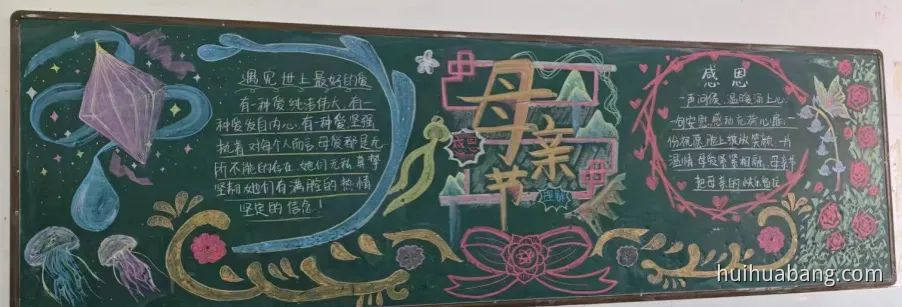 遇见世上最好的爱
有一种爱纯洁伟大,有一
种爱发自内心,有一种爱坚强
执着 对每个人而言 母爱都是无
所不能的存在 她们无私 真挚
坚韧 她们有满脸的热情
坚定的信念!
母亲节
感恩
感恩
一声问候,温暖涌上心
一句安慰 感动充满心扉 一
份祝愿 脸上绽放笑颜 一片
温情 母爱紧紧相融 母亲节
把母亲的快乐留住
huihuabang.com